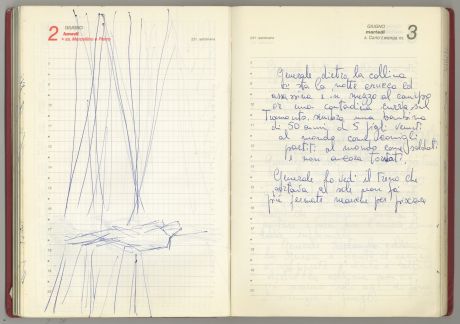 2
GIUGNO
lunedì
ss. Marcellino e Pietro
23ª settimana
GIUGNO
martedì
s. Carlo Lwanga m.
3
23ª settimana
Generale dietro la collina
ci sta la notte crucca ed
assassina e in mezzo al campo
c'è una contadina curva sul
Tramonto, sembra una bambina
di 50 anni, di 5 figli venuti
al mondo come conigli
partiti al mondo come soldati
e non ancora tornati.
Generale lo vedi il treno che
portava al sole non fa
più fermate neanche per pisciare